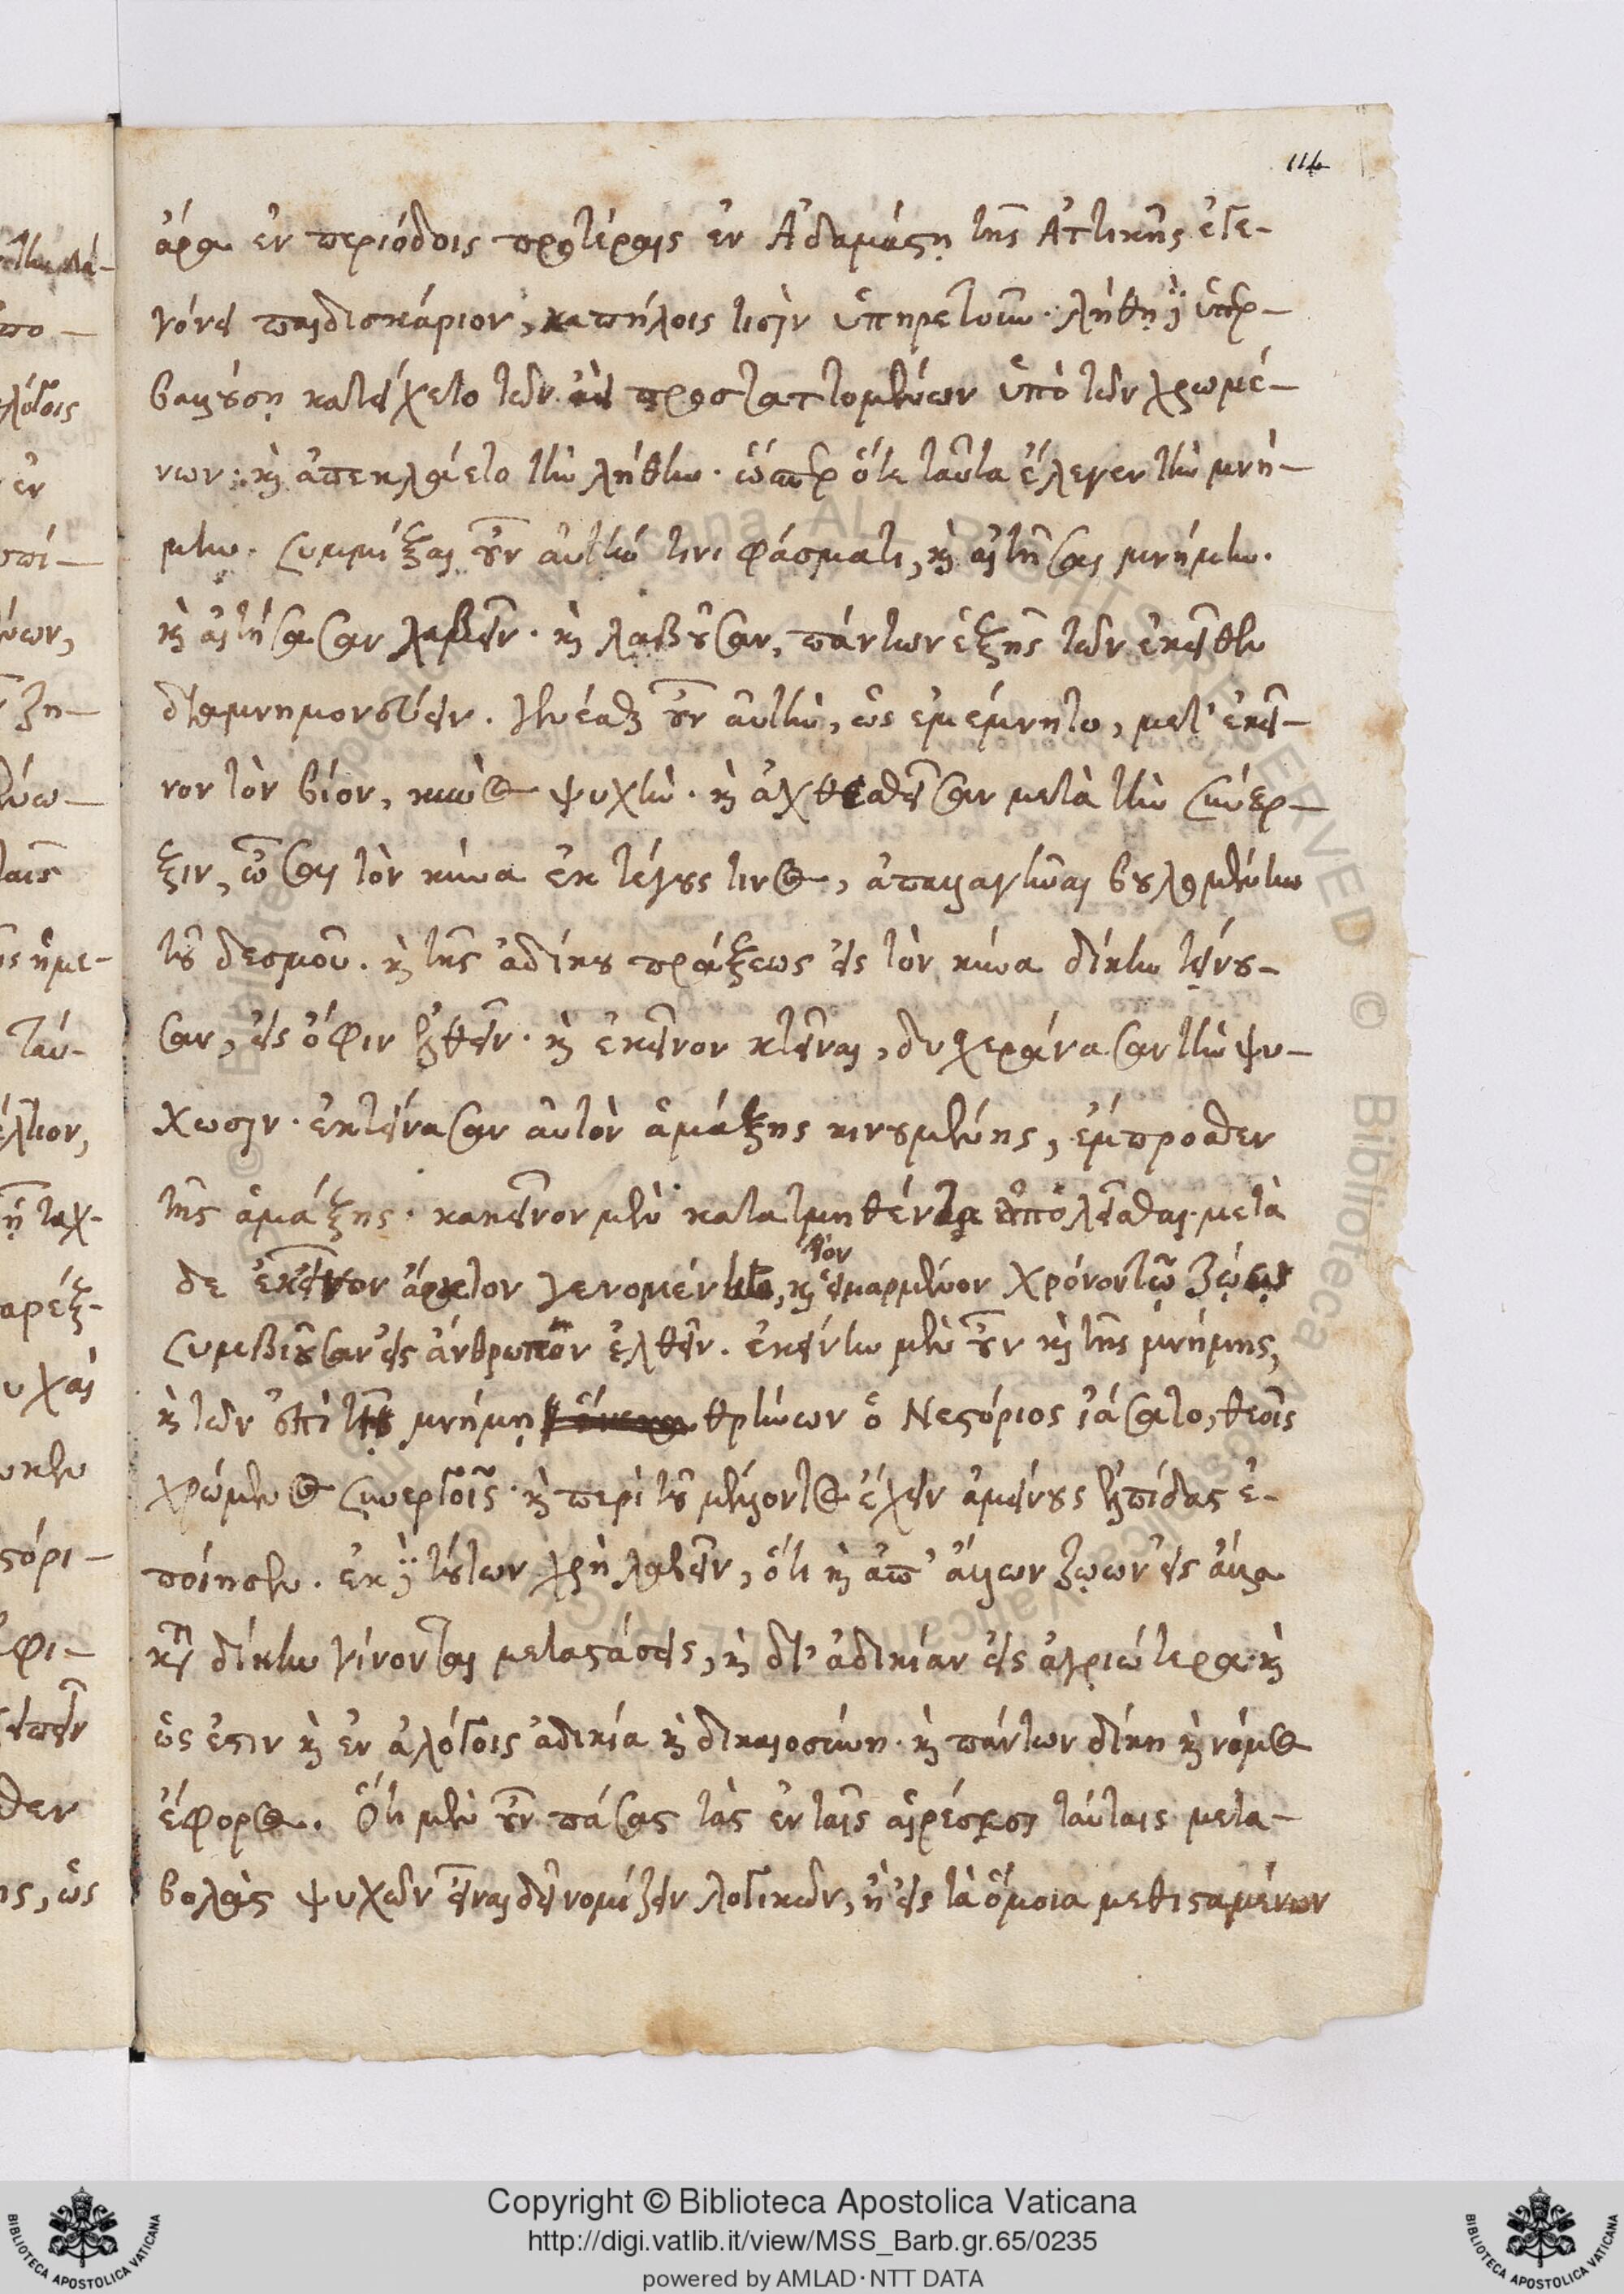 114
ἄρα ἐν περιόδοις προτέραις ἐν Ἀδαμάστῃ τῆς Ἀττικῆς ἐγε-
γόνει παιδισκάριον, καπήλοις τισὶν ὑπηρετοῦν. λήθῃ δὲ ὑπερ-
βαλλούσῃ κατείχετο τῶν ἀεὶ προσταττομένων ὑπὸ τῶν χρωμέ-
νων. καὶ ἀπεκλαίετο τὴν λήθην. ὥσπερ ὅτε ταῦτα ἔλεγεν τὴν μνή-
μην. συμμίξαι οὖν αὐτήν τινι φάσματι, καὶ αἰτῆσαι μνήμην.
καὶ αἰτήσασαν λαβεῖν. καὶ λαβοῦσαν, πάντων ἑξῆς τῶν ἐκεῖθεν
διαμνημονεύειν. γενέσθαι οὖν αὐτήν, ὡς ἐμέμνητο, μετ' ἐκεῖ-
νον τὸν βίον, κυνὸς ψυχήν. καὶ ἀχθεσθεῖσαν μετὰ τὴν σύνερ-
ξιν, ὦσαι τὸν κύνα ἐκ τέγους τινὸς, ἀπαλλαγῆναι βουλομένην
τοῦ δεσμοῦ. καὶ τῆς ἀδίκου πράξεως εἰς τὸν κύνα δίκην τίνου-
σαν, εἰς ὄφιν ἐλθεῖν. καὶ ἐκεῖνον κτεῖναι, δυσχεράνασαν τὴν ψύ-
χωσιν. ἐκτείνασαν αὐτὸν ἁμάξης κινουμένης, ἔμπροσθεν
τῆς ἁμάξης. κἀκεῖνον μὲν κατατμηθέντα ἀπολέσθαι. μετὰ
δὲ ἐκεῖνον ἄρκτον γενομένην, καὶ τὸν εἱμαρμένον χρόνον τῷ ζῴῳ
συμβιοῦσαν εἰς ἄνθρωπον ἐλθεῖν. ἐκείνην μὲν οὖν καὶ τῆς μνήμης,
καὶ τῶν ἐπὶ τῇ μνήμῃ θρήνων ὁ Νεστόριος ἰάσατο, θεοῖς
χρώμενος συνεργοῖς. καὶ περὶ τοῦ μέλλοντος ἔχειν ἀμείνους ἐλπίδας ἐ-
ποίησεν. ἐκ δὲ τούτων χρὴ λαβεῖν, ὅτι καὶ ἀπ' ἄλλων ζῴων εἰς ἄλλα
κατὰ δίκην γίνονται μεταστάσεις, καὶ δι' ἀδικίαν εἰς ἀγριώτερα. καὶ
ὡς ἔστιν καὶ ἐν ἀλόγοις ἀδικία καὶ δικαιοσύνη. καὶ πάντων δίκη καὶ νόμος
ἔφορος. Ὅτι μὲν οὖν πάσας τὰς ἐν ταῖς αἱρέσεσι ταύταις μετα-
βολὰς ψυχῶν εἶναι δεῖ νομίζειν λογικῶν, ἢ εἰς τὰ ὅμοια μεθισταμένων
Copyright © Biblioteca Apostolica Vaticana
http://digi.vatlib.it/view/MSS_Barb.gr.65/0235
powered by AMLAD · NTT DATA